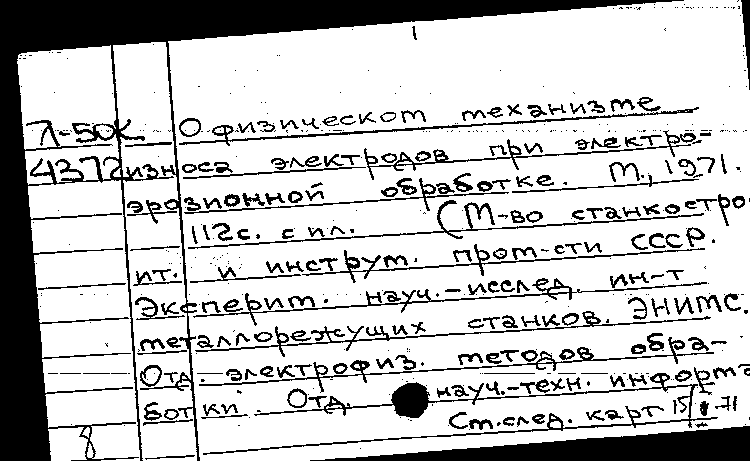 Л-50К О физическом механизме
4372 износа электродов при электро-
эрозионной обработке. М., 1971.
112с. с ил. (М-во станкостро-
ит. и инструм. пром-сти СССР.
Эксперим. науч.-исслед. ин-т
металлорежущих станков. ЭНИМС.
Отд. электрофиз. методов обра-
ботки. Отд. науч.-техн. информа
См.след. карт 15/I-71
8